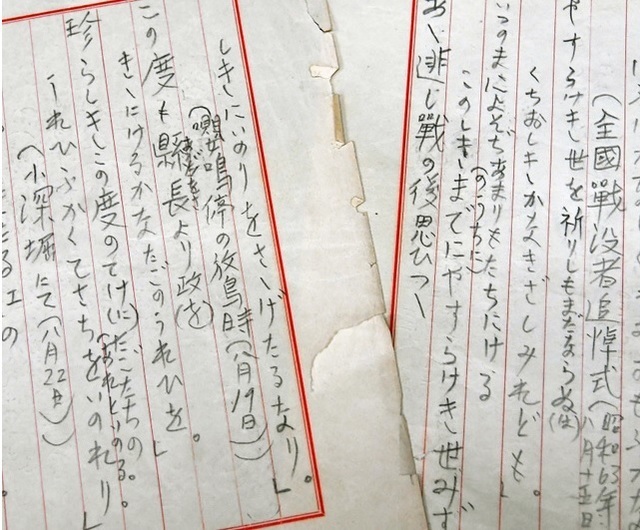 (全國戰没者追悼式(昭和63年八月十五日
やすらけき世を祈りしもまだならぬ(は)
くちおしきかなきざしみれども。
いつのまによそぢあまりもたちにける
(のうちに)
このしきまでにやすらけき世みず
あゝ逝し戰の後思ひつゝ
しきにいのりをさゝげたるなり。」
(嚶鳴亭の放鳥時(八月19日))
この度は縣長より政(を)
きゝにけるかなたごのうれひを。」
珍らしきこの度のてけに(い)たごたちの
うれひふかくてさちをいのれり。」
(われもいのる。
(小深堀にて(八月22日))